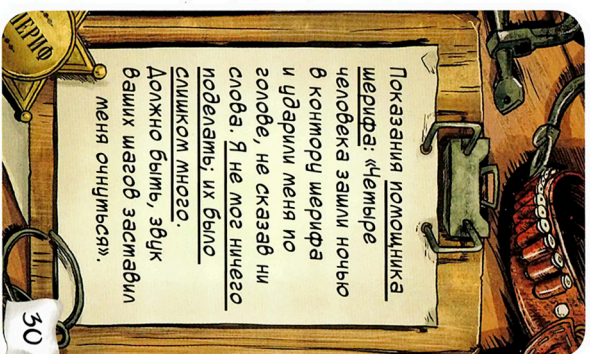 Показания помощника
шерифа: «Четыре
человека зашли ночью
в контору шерифа
и ударили меня по
голове, не сказав ни
слова. Я не мог ничего
поделать; их было
слишком много.
Должно быть, звук
ваших шагов заставил
меня очнуться».
ШЕРИФ
30